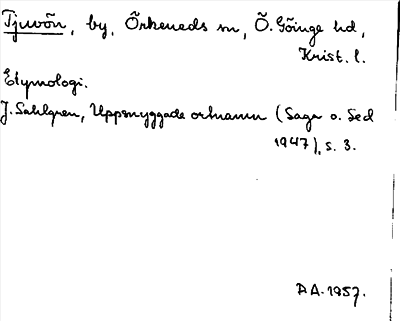 Tjuvön, by, Örkeneds sn, Ö. Göinge hd,
Krist. l.
Etymologi.
J. Sahlgren, Uppsnyggade ortnamn (Saga o. Sed
1947), s. 3.
AA. 1957.